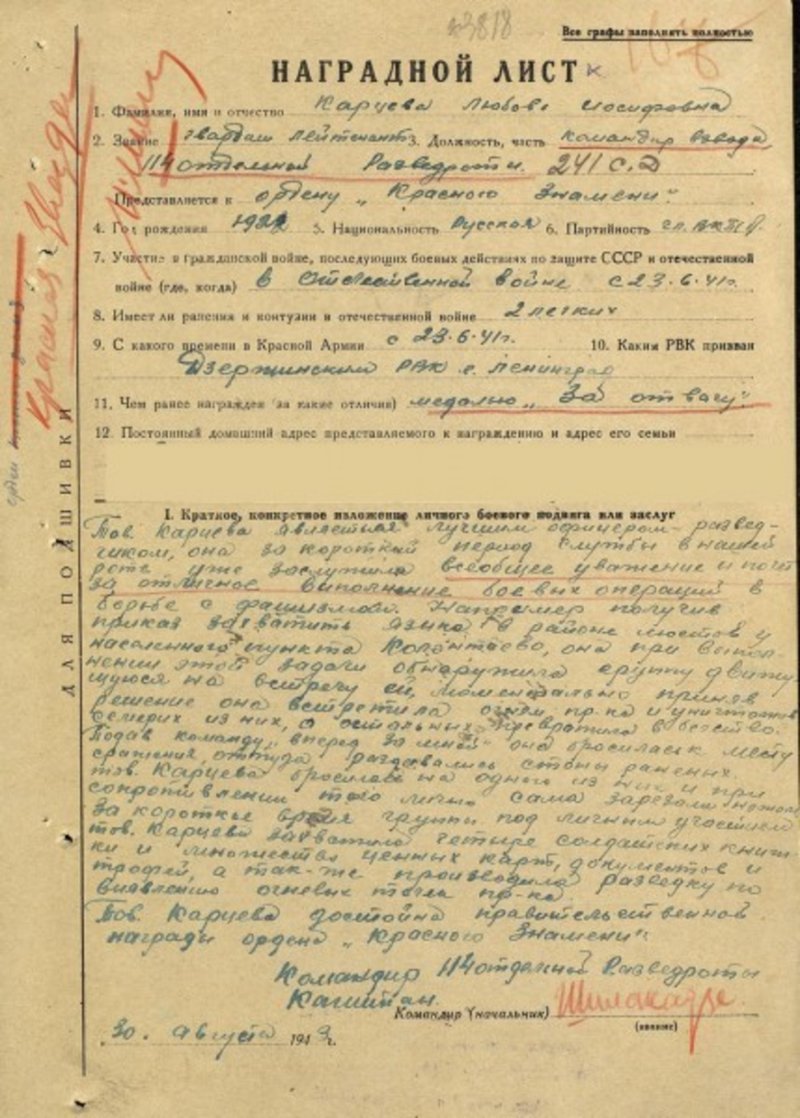 3818
Все графы заполнять полностью
НАГРАДНОЙ ЛИСТ
1. Фамилия, имя и отчество Карцева Любовь Иосифовна
2. Звание гвардии лейтенант 3. Должность, часть командир взвода
114 отдельной Разведроты 241 с.д
Представляется к ордену „Красного Знамени".
4. Год рождения 5. Национальность Русская 6. Партийность
7. Участие в гражданской войне, последующих боевых действиях по защите СССР и отечественной
войне (где, когда) в Отечественной войне с 23.6.41г.
8. Имеет ли ранения и контузии в отечественной войне 2 легких
9. С какого времени в Красной Армии с 23.6.41г. 10. Каким РВК призван
Дзержинским РВК г. Ленинград
11. Чем ранее награжден (за какие отличия) медалью „За отвагу".
12. Постоянный домашний адрес представляемого к награждению и адрес его семьи
I. Краткое, конкретное изложение личного боевого подвига или заслуг
Тов. Карцева является лучшим офицером-развед-
чиком, она за короткий период службы в нашей
роте уже заслужила всеобщее уважение и почет
за отличное выполнение боевых операций в
борьбе с фашизмом. Например получив
приказ захватить языка в районе мостов у
населенного пункта она при выпол-
нении этой задачи обнаружила группу двигу-
щуюся на встречу ей, моментально приняв
решение она встретила огнем пр-ка и уничтожив
семерых из них, а остальных превратила в бегство.
Подав команду „вперед за мной" она бросилась к месту
сражения, откуда раздавались стоны раненых.
тов. Карцева бросилась на одного из них и при
сопротивлении того лично сама зарезала ножом
За короткое время группа под личным участием
тов. Карцева захватила четыре солдатских книж-
ки и множество ценных карт, документов и
трофей, а так-же производила разведку по
выявлению огневых точек пр-ка.
Тов. Карцева достойна правительственной
награды ордена „Красного Знамени".
Командир 114 отдельной Разведроты
Капитан
Командир (начальник) Шилакадзе.
(звание)
30. августа 1943 г.
ДЛЯ ПОДШИВКИ
Красная Звезда